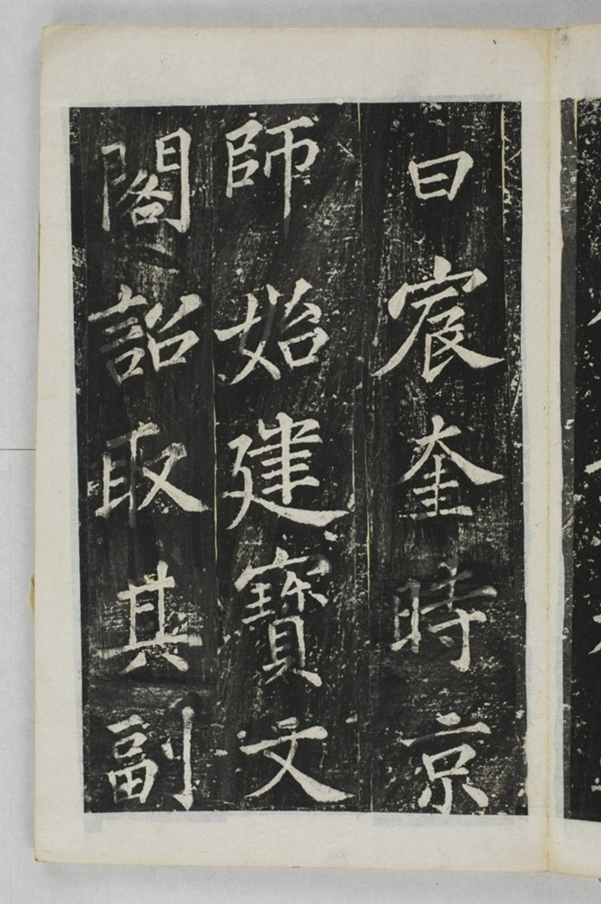 曰宸奎時京
師始建寶文
閣詔取其副